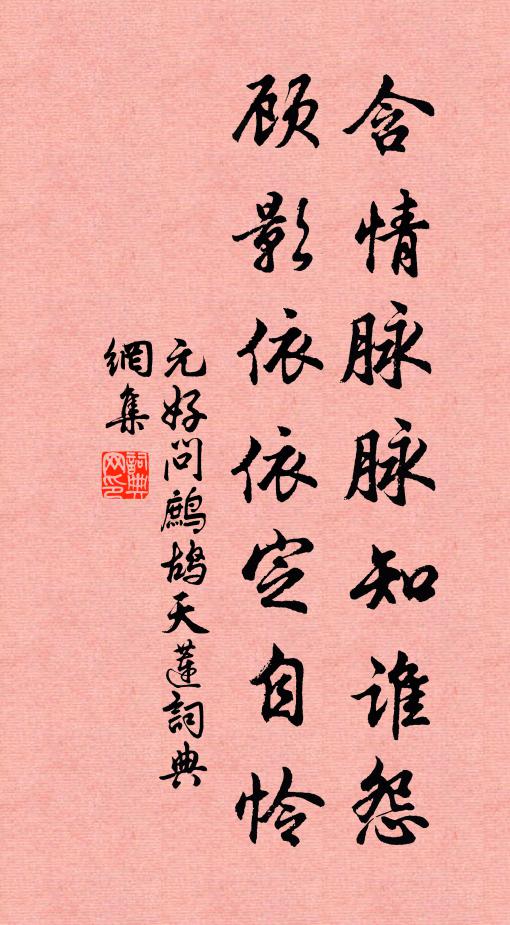 含情脉脉知谁怨
顾影依依定自怜
元好问鹧鸪天莲詞典
網集
詞典
网印